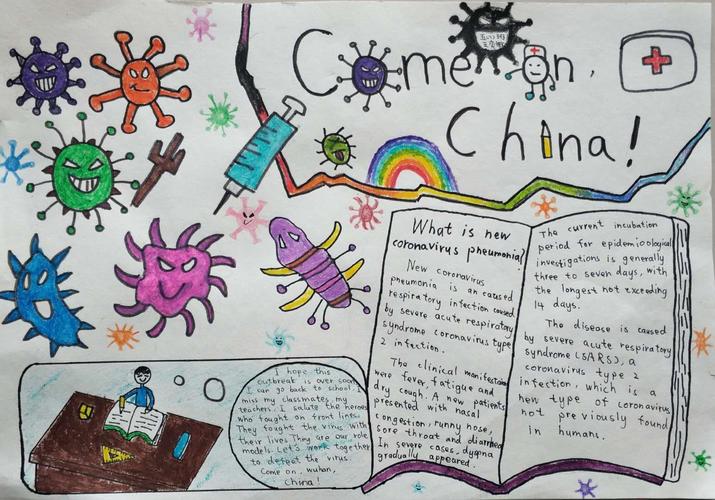 Come On,
China!
What is new
coronavirus pneumonia?
New coronavirus
pneumonia is an caused
respiratory infection caused
by severe acute respiratory
syndrome coronavirus type
2 infection.
The clinical manifestations
were fever, fatigue and
dry cough. A new patients
presented with nasal
congestion, runny nose,
sore throat and diarrhea
In severe cases, dyspnea
gradually appeared.
The current incubation
period for epidemiological
investigations is generally
three to seven days, with
the longest not exceeding
14 days.
The disease is caused
by severe acute respiratory
syndrome (SARS), a
coronavirus type 2
infection, which is a
new type of coronavirus
not previously found
in humans.
I hope this
outbreak is over soon
I can go back to school. I
miss my classmates, my
teachers. I salute the heroes
who fought on front lines.
They fought the virus with
their lives. They are our role
models. Let's work together
to defeat the virus.
Come on, wuhan,
China!